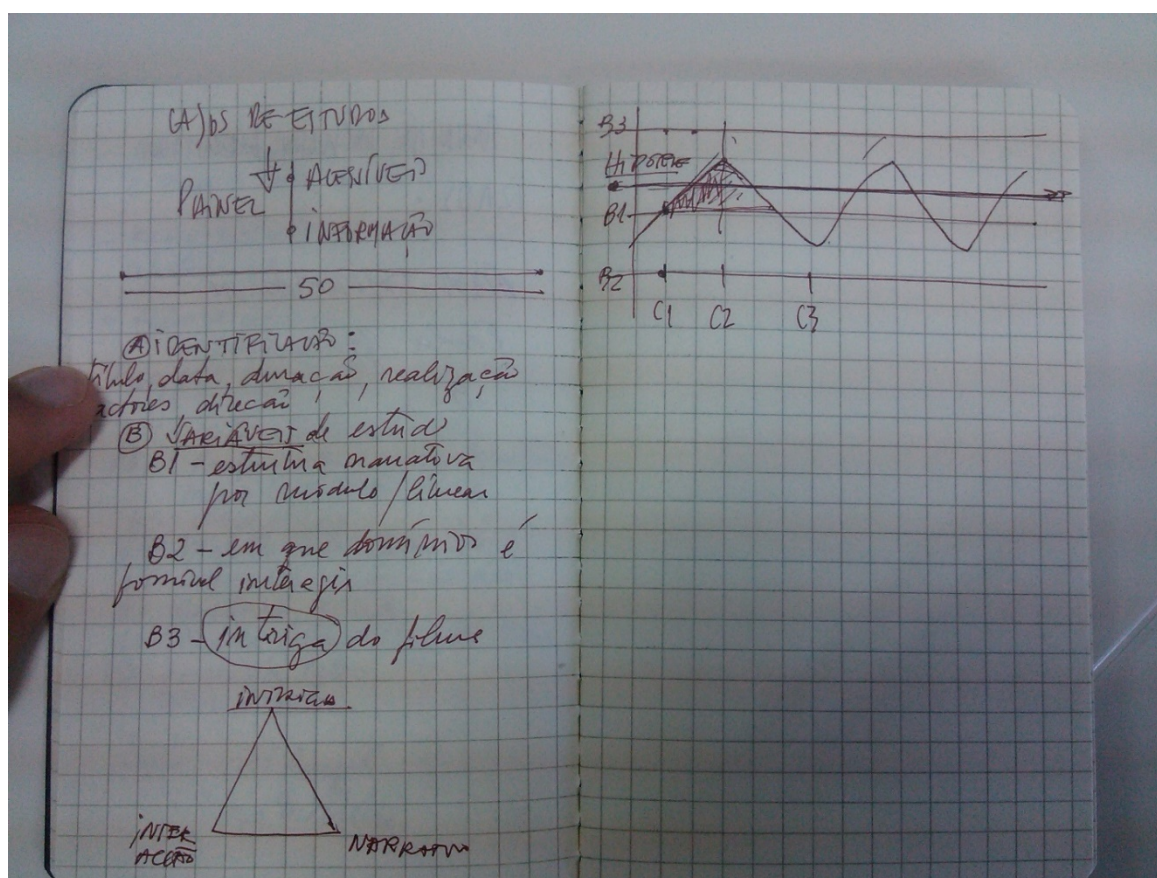 CASOS DE ESTUDOS
ACESSÍVEIS
PAINEL
INFORMAÇÃO
50
A IDENTIFICAÇÃO:
título, data, duração, realização
actores direcão
B VARIÁVEIS de estudo
B1 - estrutura narrativa
por módulo / linear
B2 - em que domínios é
possível interagir
B3 - intriga do filme
INTRIGA
INTER
ACÇÃO
NARRATIVA
B3
HIPÓTESE
B1
B2
C1 C2 C3